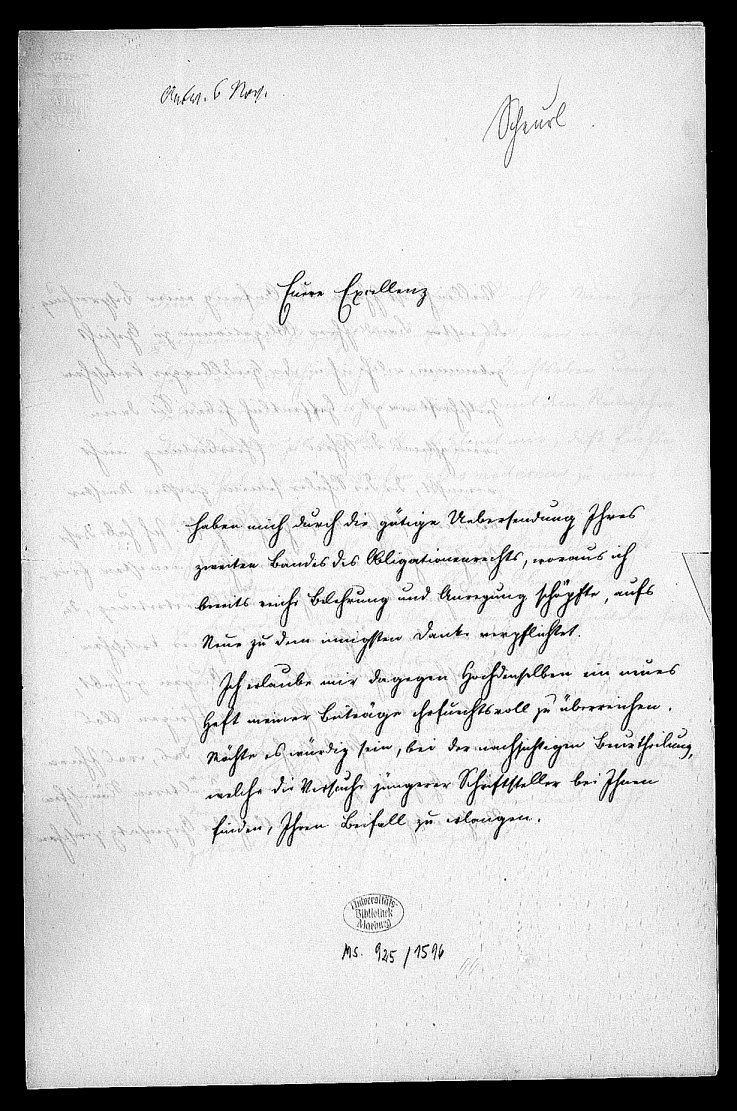 Antw. 6 Nov.
Scheurl
Euere Excellenz
haben mich durch die gütige Uebersendung Ihres
zweiten Bandes des Obligationenrechts, woraus ich
bereits reiche Belehrung und Anregung schöpfte, aufs
Neue zu dem innigsten Danke verpflichtet.
Ich erlaube mir dagegen Hochdenselben ein neues
Heft meiner Beiträge ehrfurchtsvoll zu überreichen.
Möchte es würdig sein, bei der nachsichtigen Beurtheilung,
welche die Versuche jüngerer Schriftsteller bei Ihnen
finden, Ihren Beifall zu erlangen.
Universitäts-
Bibliothek
Marburg
Ms. 925/1596